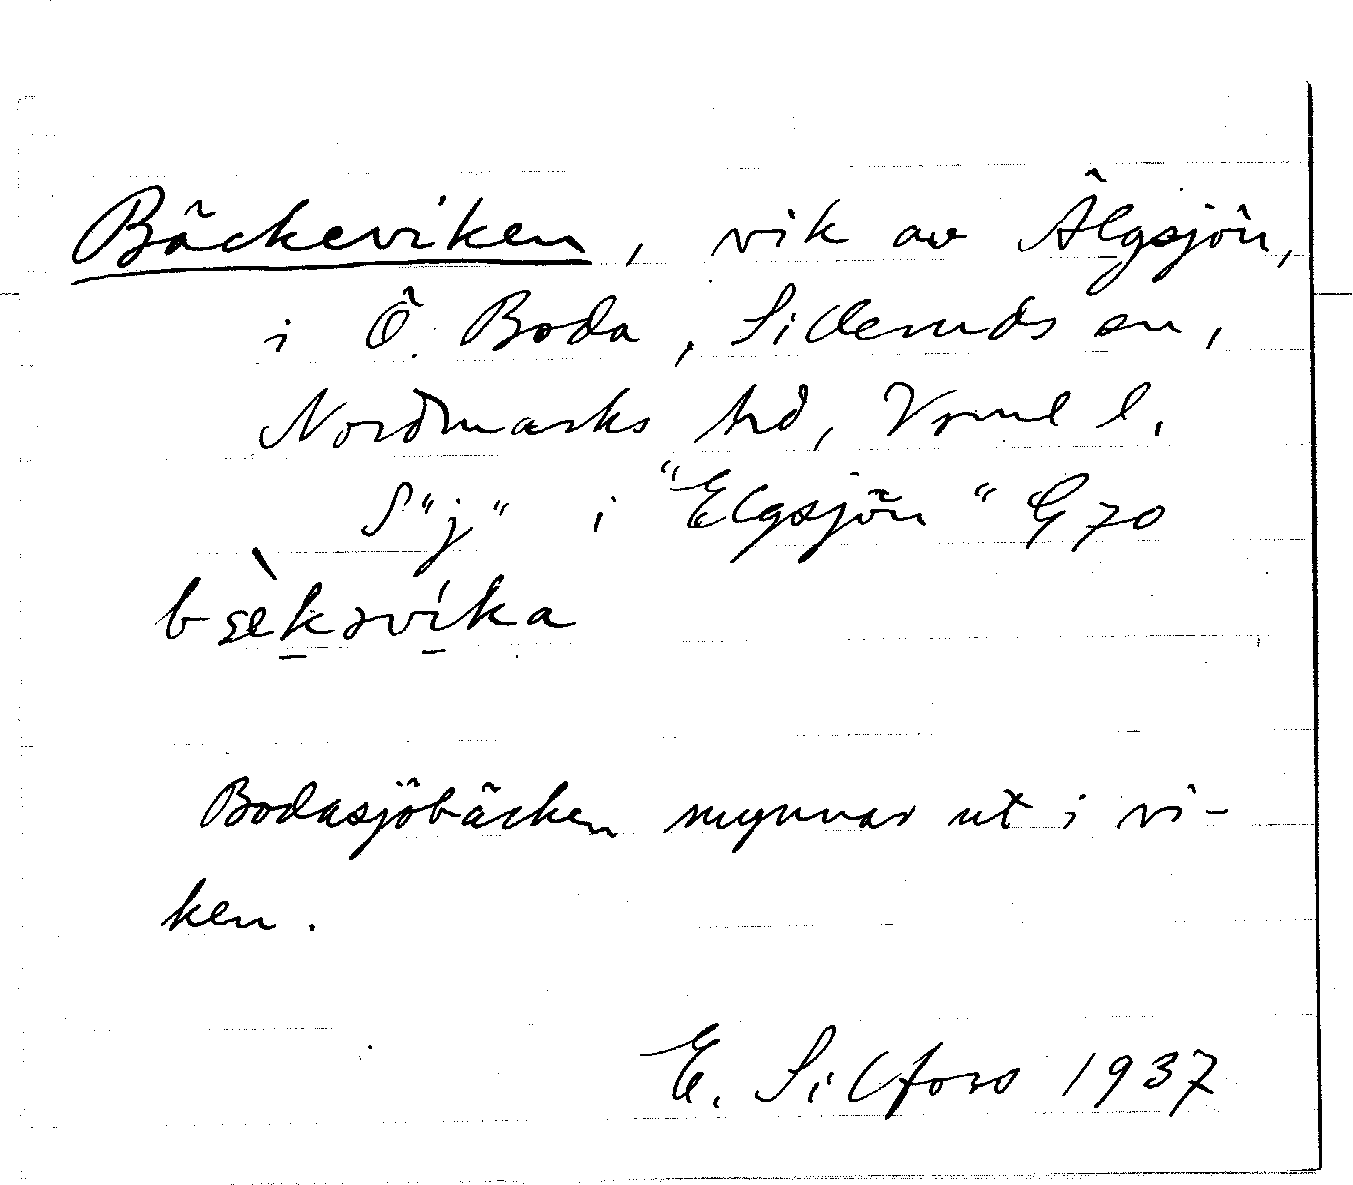 Bäckeviken, vik av Älgsjön,
i Ö. Boda, Silleruds sn,
Nordmarks hd, Vrml l.
S "j" i "Elgsjön" G 70
bæ̀kəvíka
Bodasjöbäcken mynnar ut i vi-
ken.
E. Silfors 1937